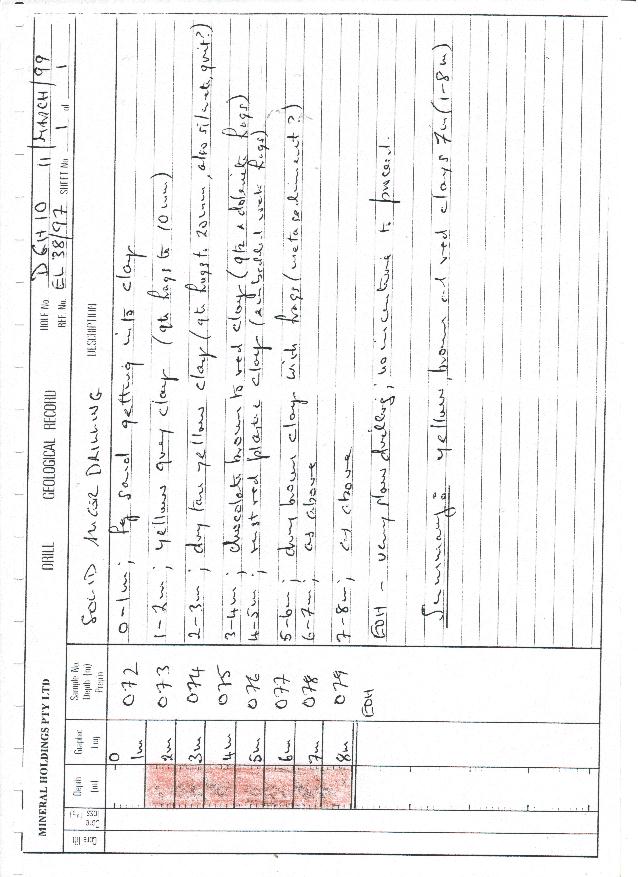 MINERAL HOLDINGS PTY LTD
DRILL GEOLOGICAL RECORD
HOLE No DGH 10 11/MARCH/99
REF. No. EL 38/97 SHEET No 1 of 1
Core
Depth (m)
Graphic Log
Sample No.
Depth (m)
From
DESCRIPTION
SOLID AUGER DRILLING
0
1m 072 0-1m; fg sand getting into clay
2m 073 1-2m; yellow grey clay (qtz frags to 10mm)
3m 074 2-3m; dry tan yellow clay (qtz frags to 20mm, also silcrete, grit?)
4m 075 3-4m; chocolate brown to red clay (qtz & dolerite frags)
5m 076 4-5m; red plastic clay (embedded rock frags)
6m 077 5-6m; dry brown clay with frags (metasediment?)
7m 078 6-7m; as above
8m 079 7-8m; as above
EOH EOH - very slow drilling; no incentive to proceed.
Summary: yellow, brown and red clays 7m (1-8m)